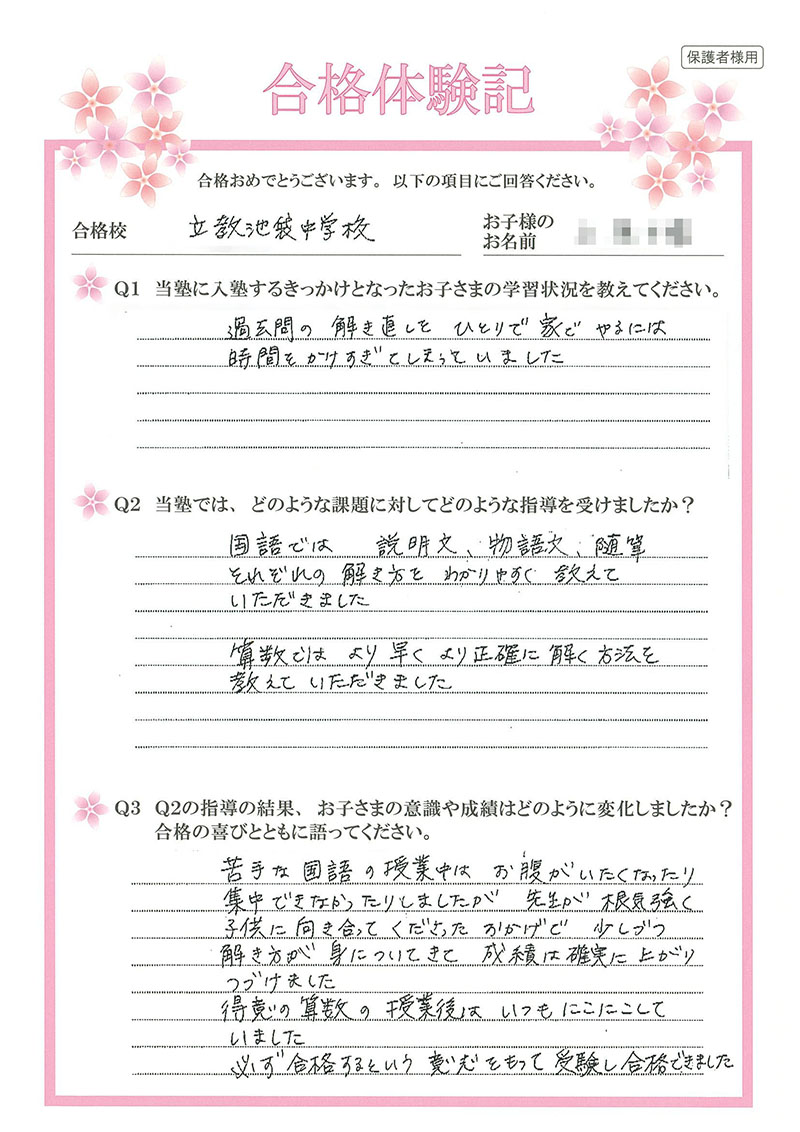 保護者様用
合格体験記
合格おめでとうございます。以下の項目にご回答ください。
合格校 立教池袋中学校
お子様の
お名前
Q1 当塾に入塾するきっかけとなったお子さまの学習状況を教えてください。
過去問の 解き直しを ひとりで 家で やるには
時間を かけすぎてしまって いました
Q2 当塾では、どのような課題に対してどのような指導を受けましたか？
国語では 説明文、物語文、随筆
それぞれの 解き方を わかりやすく 教えて
いただきました
算数では より 早く より正確に 解く方法を
教えて いただきました
Q3 Q2の指導の結果、お子さまの意識や成績はどのように変化しましたか？
合格の喜びとともに語ってください。
苦手な 国語の 授業中は お腹が いたくなったり
集中できなかったりしましたが 先生が 根気強く
子供に 向き合って くださった おかげで 少しづつ
解き方が 身についてきて 成績は確実に上がり
つづけました
得意の 算数の 授業後は いつも にこにこして
いました
必ず 合格するという 意志をもって 受験し合格できました